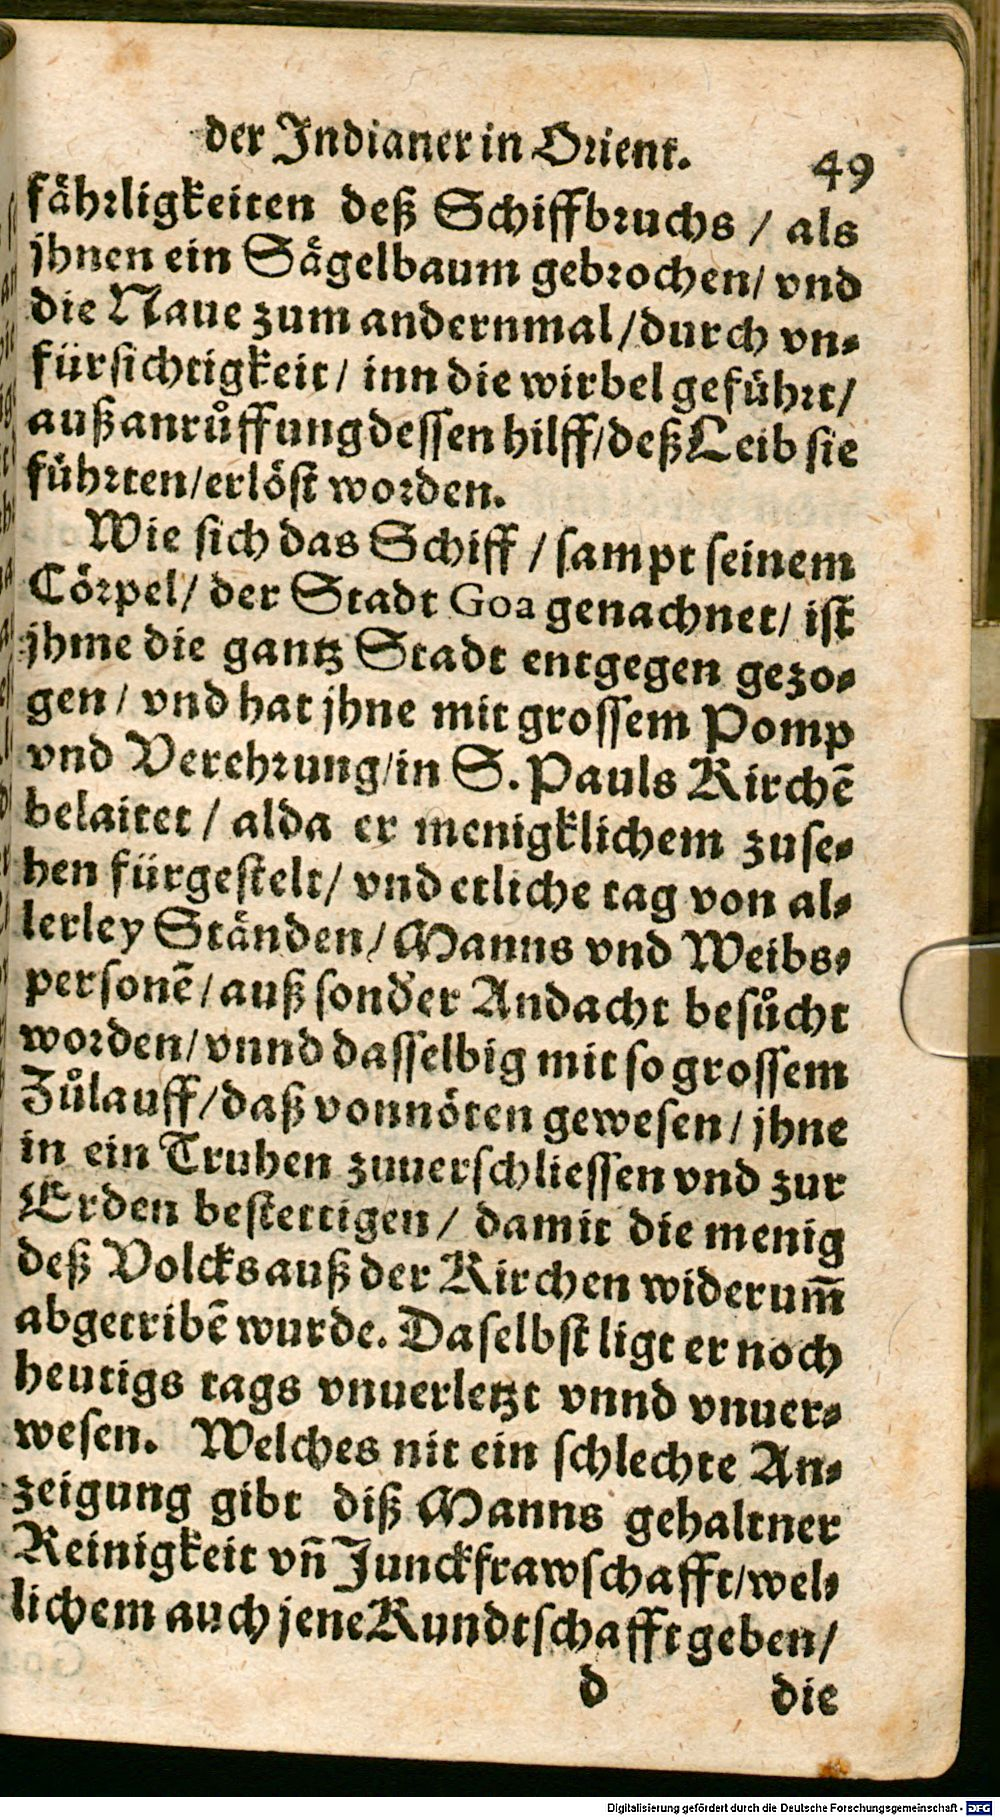 der Indianer in Orient. 49
fährligkeiten deß Schiffbruchs / als
jhnen ein Sägelbaum gebrochen/ vnd
die Naue zum andernmal/durch vn⸗
fürsichtigkeit/ inn die wirbel geführt/
auß anrůffung dessen hilff/deß Leib sie
führten/erlöst worden.
Wie sich das Schiff / sampt seinem
Cörpel/ der Stadt Goa genachnet/ ist
jhme die gantz Stadt entgegen gezo⸗
gen / vnd hat jhne mit grossem Pomp
vnd Verehrung/in S. Pauls Kirchē
belaitet / alda er menigklichem zuse⸗
hen fürgestelt/ vnd etliche tag von al⸗
lerley Ständen/ Manns vnd Weibs⸗
personē/ auß sonder Andacht besůcht
worden/ vnnd dasselbig mit so grossem
Zůlauff/daß vonnöten gewesen/ jhne
in ein Truhen zuuerschliessen vnd zur
Erden bestettigen/ damit die menig
deß Volcks auß der Kirchen widerum̄
abgetribē wurde. Daselbst ligt er noch
heutigs tags vnuerletzt vnnd vnuer⸗
wesen. Welches nit ein schlechte An⸗
zeigung gibt diß Manns gehaltner
Reinigkeit vn̄ Junckfrawschafft/wel⸗
lichem auch jene Kundtschafft geben/
d die
Digitalisierung gefördert durch die Deutsche Forschungsgemeinschaft - DFG